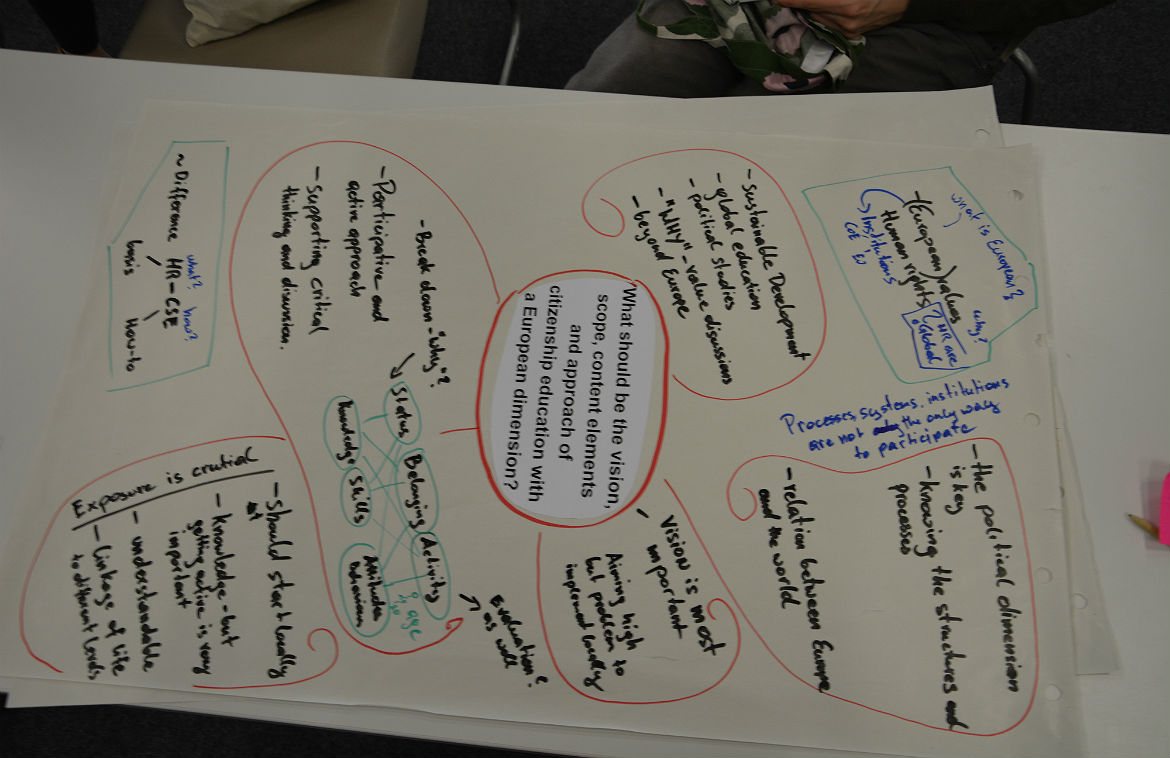 what is European?
-(European) values
Human rights
Institutions
CoE EU
why?
? HR are
Global
Processes, systems, institutions
are not the only way
to participate
- the political dimension
is key
- knowing the structures and
processes
- relation between Europe
and the world
- Sustainable Development
- global education
- political studies
- "WHY" - value discussions
- beyond Europe
What should be the vision,
scope, content elements
and approach of
citizenship education with
a European dimension?
Vision is most
important
Aiming high
but problem to
implement locally
- Break down - "Why"?
- Participative and
active approach
- Supporting critical
thinking and discussion.
Status
Belonging
Activity
Knowledge
Skills
Attitudes
Behaviour
age
Evaluation?
as well
what? how?
~ Difference HR - CSE
basis How-to
Exposure is crucial
- Should start locally
- knowledge - but
getting active is very
important
- understandable
- Linkage of life
to different levels